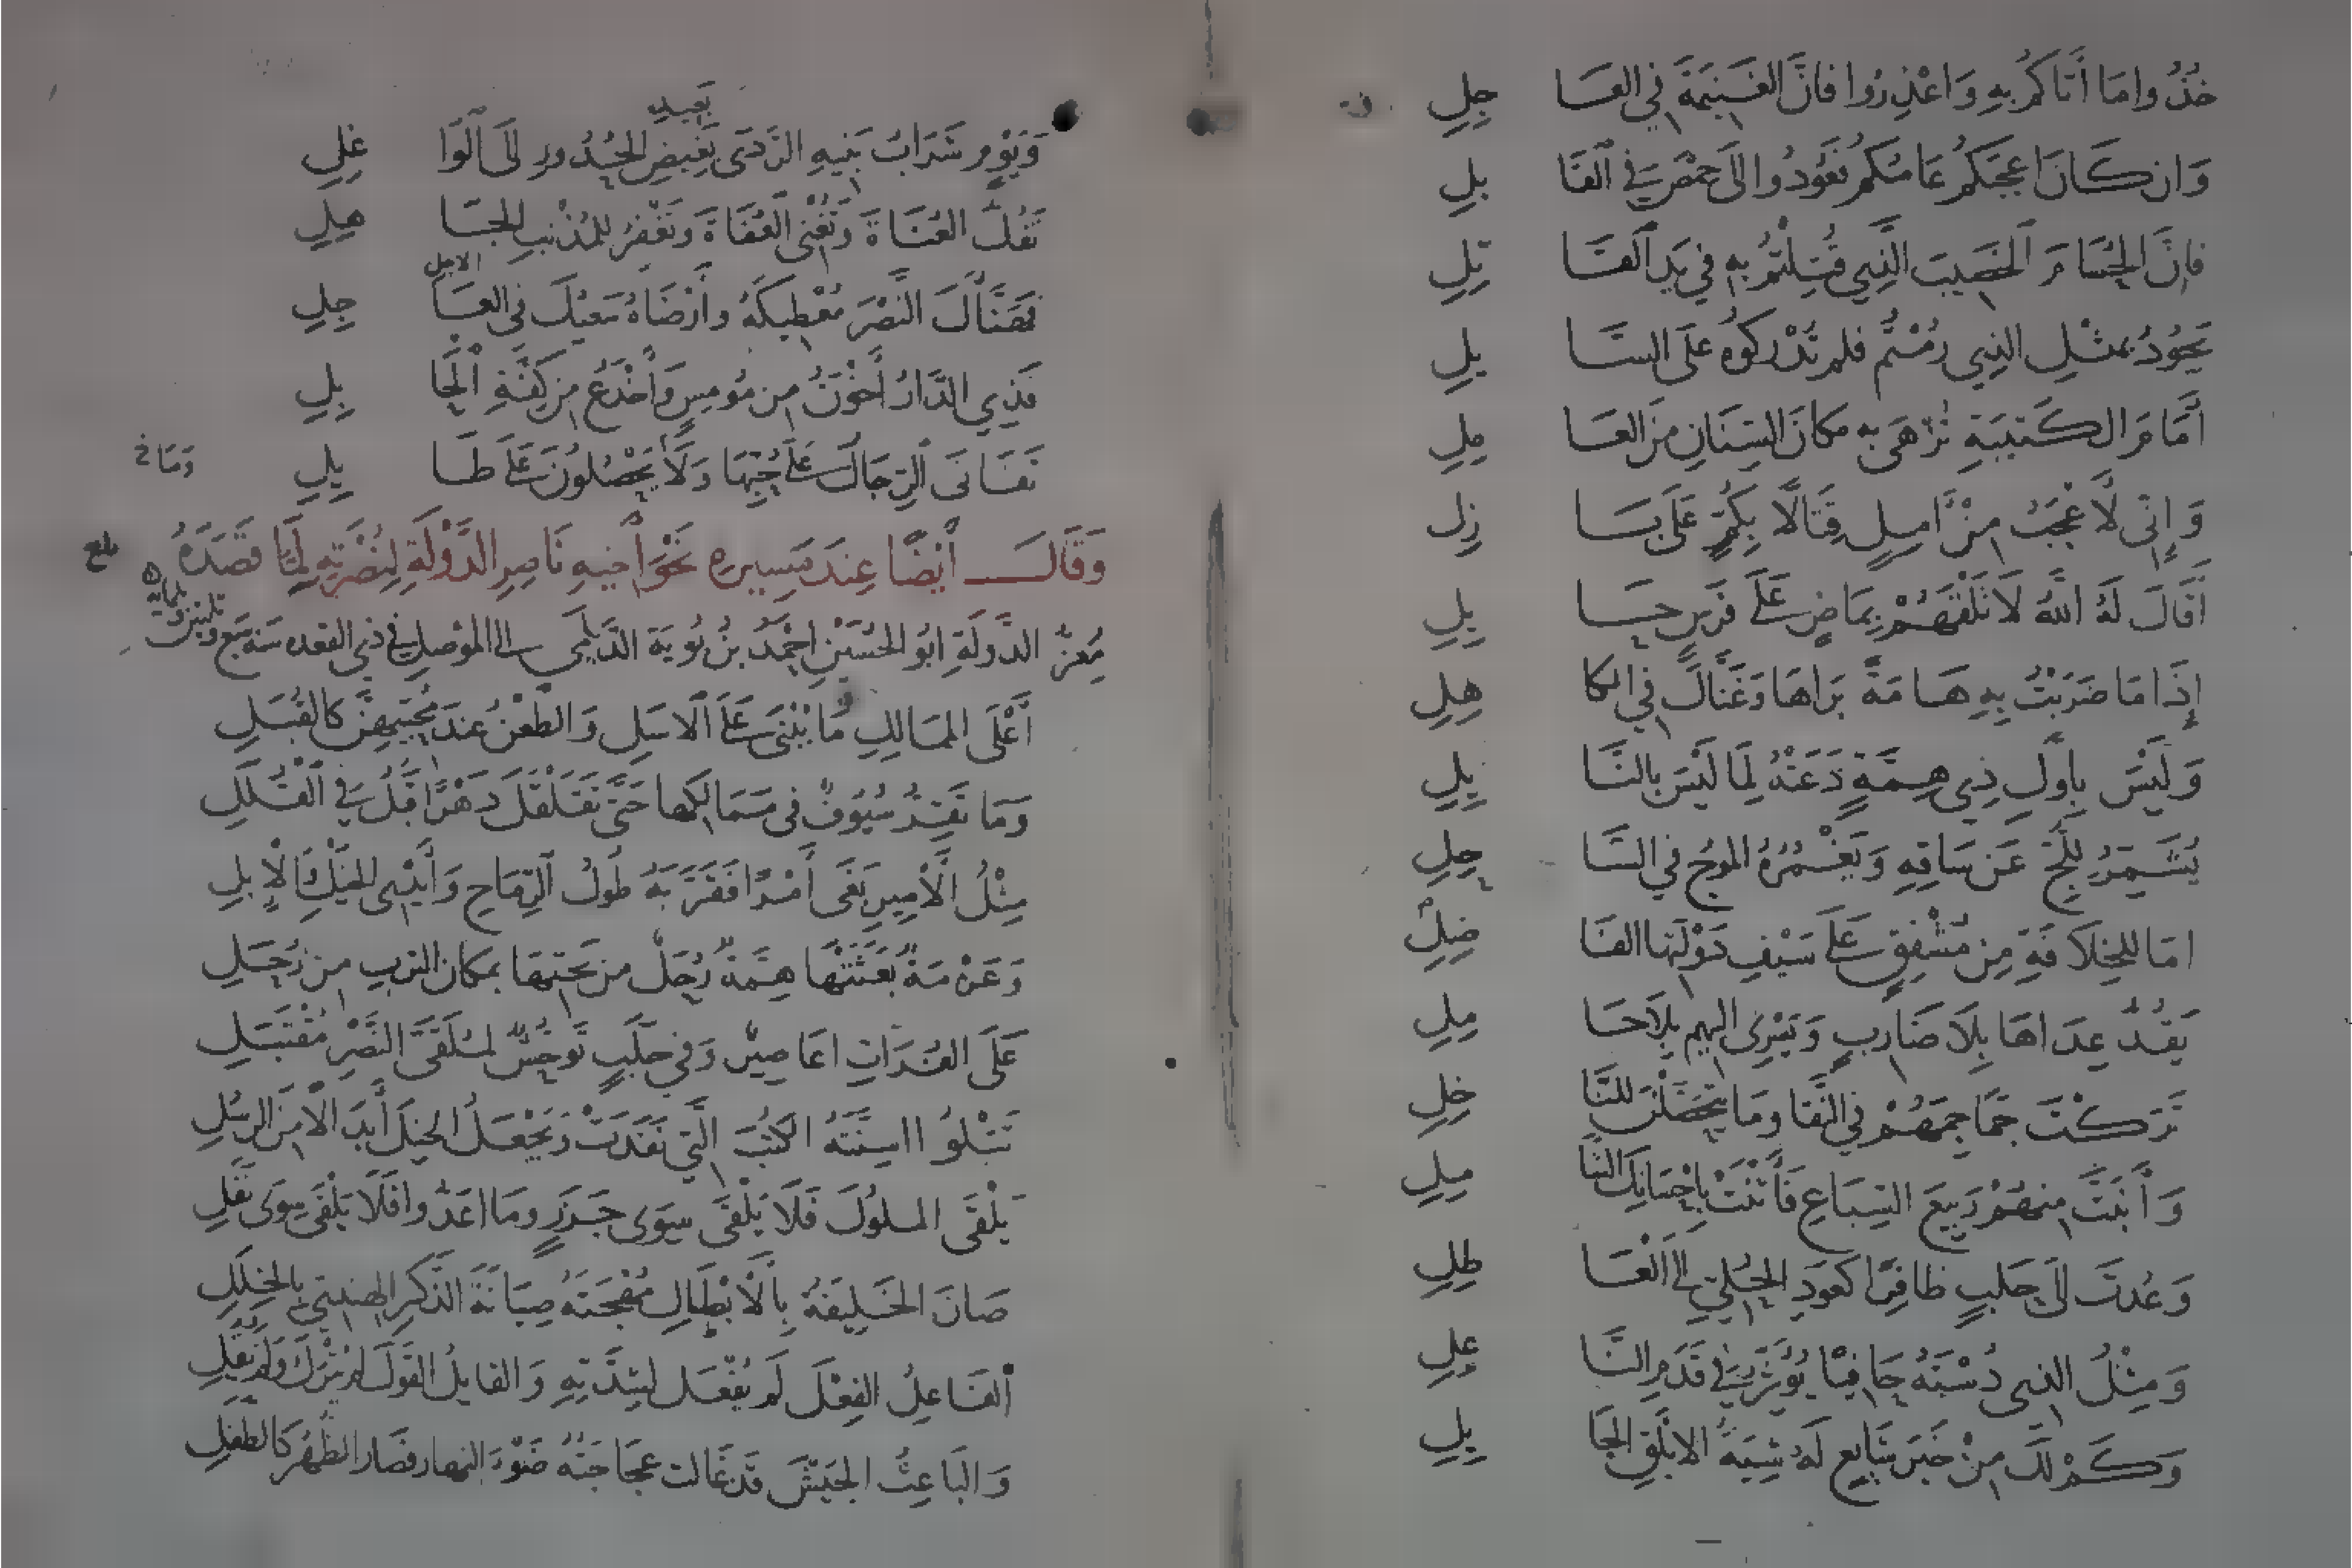 خُذُوا مَا أَتَاكُمْ بِهِ وَاعْذِرُوا فَانَّ الغَنِيمَةَ فِي العَا جِلِ
وَان كَانَ اعجَبَكُمْ عَامُكُمْ فَعُودُوا الَى حِمْصَ فِي القَا بلِ
فَانَّ الحُسَامَ الخَضِيبَ الَّذِي قُتِلْتُمْ بِهِ فِي يَدِ القَا تِلِ
يَجُودُ بمثْلِ الذِي رُمْتُم فلم تُدْرِكوُه عَلى السَّا يلِ
أَمَامَ الكَتيبَةِ تُزْهَى بِهِ مَكانَ السِّنَانِ مِنَ العَا مِلِ
وَإِنّى لَأَعْجَبُ مِنْ امِلٍ قِتَالًا بِكُمٍّ عَلَى بَا زِلِ
أَقَالَ لَهُ اللهُ لَا تَلْقَهُمْ بِمَاضٍ عَلَى فَرَسٍ حَا يِلِ
إِذَا مَا ضَرَبْتَ بِهِ هَامَةً بَرَاهَا وَغَنَّاكَ فِي الكا هِلِ
وَلَيْسَ بِأَوَّلِ ذِي هِمَّةٍ دَعَتْهُ لِمَا لَيْسَ بِالنَّا يِلِ
يُشَمِّرُ لِلُّجِّ عَن سَاقِهِ وَيَغْمُرُهُ الموْجُ فِي السَّا حِلِ
امَا لِلخِلَافَةِ مِن مُشْفِقٍ عَلَى سَيْفِ دَوْلَتِهَا الفَا ضِلِ
يَقُدُّ عِدَاهَا بِلَا ضَارِبٍ وَيَسْرِى اليهِم بِلَا حَا مِلِ
تَرَكْتَ جَمَاجِمَهُمْ فِي النَّقَا وَمَا يَتَحَصَّلْنَ لِلنَّا خِلِ
وَأَنْبَتَّ مِنهُمْ رَبِيعَ السِّبَاعِ فَأَثْنَتْ بِإِحْسَانِكَ الشَّا مِلِ
وَعُدتَ الَى حَلبٍ ظافِرًا كَعَوْدِ الحُلِيّ الى العَا طِلِ
وَمِثْلُ الذِي دُسْتَهُ حَافِيًا يُؤَثِّرُ فِي قَدَمِ النَّا عِلِ
وَكَمْ لَكَ مِنْ خَبَرٍ شَايِعٍ لَهُ شِيَةُ الابْلَقِ الجَا يِلِ
بَعِيدِ
وَيَوْمٍ شَرَابُ بَنِيهِ الرَّدَى بَغِيضِ الحُضُورِ الَى الْوَا غِلِ
تَفُكُّ العُنَاةَ وَتُغْنِى العُفَاةَ وَتَغْفِرُ لِلمُذْنِبِ الجَا هِلِ
الاجل
فَهَنَّأَكَ النَّصْرَ مُعْطِيكَهُ وَأَرْضَاهُ سَعْيُكَ فِي العَا جِلِ
فَذِي الدَّارُ أَخْوَنُ مِن مُومِسٍ وَأَخْدَعُ مِن كِفَّةِ الْحَا بِلِ
تَفَانَى الرِّجَالُ عَلَى حُبِّهَا وَلَا يَحْصُلُونَ عَلَى طَا يِلِ وَمَا خ
وَقَالَ أَيْضًا عِندَ مَسِيرِهِ نَحْوَ أَخِيهِ نَاصِرِ الدَّوْلَةِ لِنُصْرَتِهِ لَمَّا قَصَدَهُ بلغ
مُعِزُّ الدَّوْلَةِ ابُو الحُسَيْنِ احْمَدُ بنُ بُوَيهَ الدَّيْلَمِى الى الموْصِل فى ذى القعده سنه سَبع وثلثين وثلثمايه
أَعْلَى الممَالِكِ مَا يُبْنَى عَلَى الاسَلِ وَالطَّعْنُ عِندَ مُحِبِّيهِنَّ كَالقُبَلِ
وَمَا تَقِرُّ سُيُوفٌ فى مَمَالِكِهَا حَتَّى تُقَلْقَلَ دَهْرًا قَبْلُ فِي القُلَلِ
مِثْلُ الأَمِيرِ بَغَى أَمْرًا فَقَرَّبَهُ طُولُ الرِّمَاحِ وَأَيْدِى الخَيْلِ وَالإِبِلِ
وَعَزْمَةٌ بَعَثَتْهَا هِمَّةٌ زُحَلٌ مِن تَحتِهَا بمكَانِ التربِ مِن زُحَلِ
عَلَى الفُرَاتِ اعَاصِيرٌ وَفِي حَلَبٍ تَوَحُّشٌ لِمُلَقَّى النَّصْرِ مُقْتَبَلِ
تَتْلُو اسِنَّتُهُ الكُتْبَ الَّتِي نَفَذَتْ وَيَجْعَلُ الخيلَ أَبدَالًا مِنَ الرُّسُلِ
يَلْقَى الملُوكَ فَلَا يَلْقَى سِوَى جَزَرٍ وَمَا اعَدُّوا فَلَا يَلْقَى سِوَى نَفَلِ
صَانَ الخَلِيفَةُ بِالأَبْطَالِ مُهْجَتَهُ صِيَانَةَ الذَّكَرِ الهِندِىِّ بِالخِلَلِ
أَلفَاعِلُ الفِعْلَ لَمْ يُفْعَل لِشِدَّتِهِ وَالقَايلُ القَوْلَ لَمْ يُتْرَكْ وَلَمْ يُقَلِ
وَالبَاعِثُ الجَيْشَ قَدْ غَالت عَجَاجَتُهُ ضَوْءَ النهارِ فَصَار الظُّهْرُ كَالطَّفَلِ